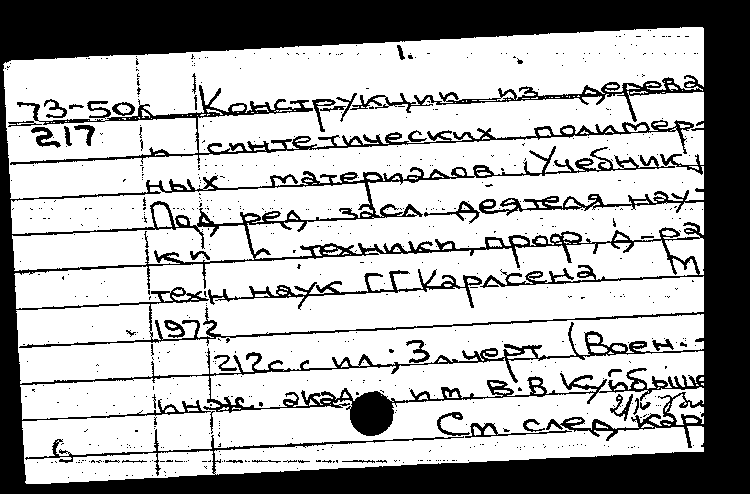 1.
73-50к Конструкции из дерева
217 и синтетических полимер-
ных материалов. (Учебник)
Под ред. засл. деятеля нау-
ки и техники, проф., д-ра
техн. наук Г.Г. Карлсена. М.
1972.
212 с. с ил.; 3 л. черт. (Воен.-
инж. акад. им. В.В. Куйбыше
См. след. кар
6